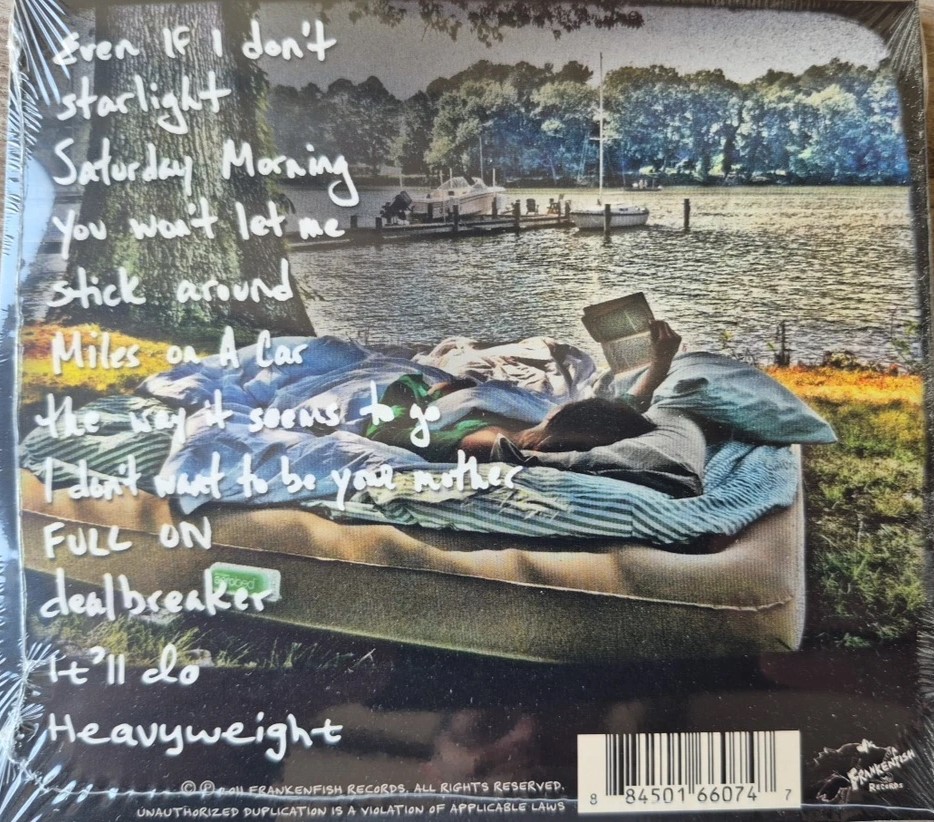 Even If I don't
starlight
Saturday Morning
You won't let me
stick around
Miles on A Car
the way it seems to go
I don't want to be your mother
FULL ON
dealbreaker
It'll do
Heavyweight
© ℗ 2011 FRANKENFISH RECORDS. ALL RIGHTS RESERVED.
UNAUTHORIZED DUPLICATION IS A VIOLATION OF APPLICABLE LAWS
8 84501 66074 7
FRANKENFISH
RECORDS